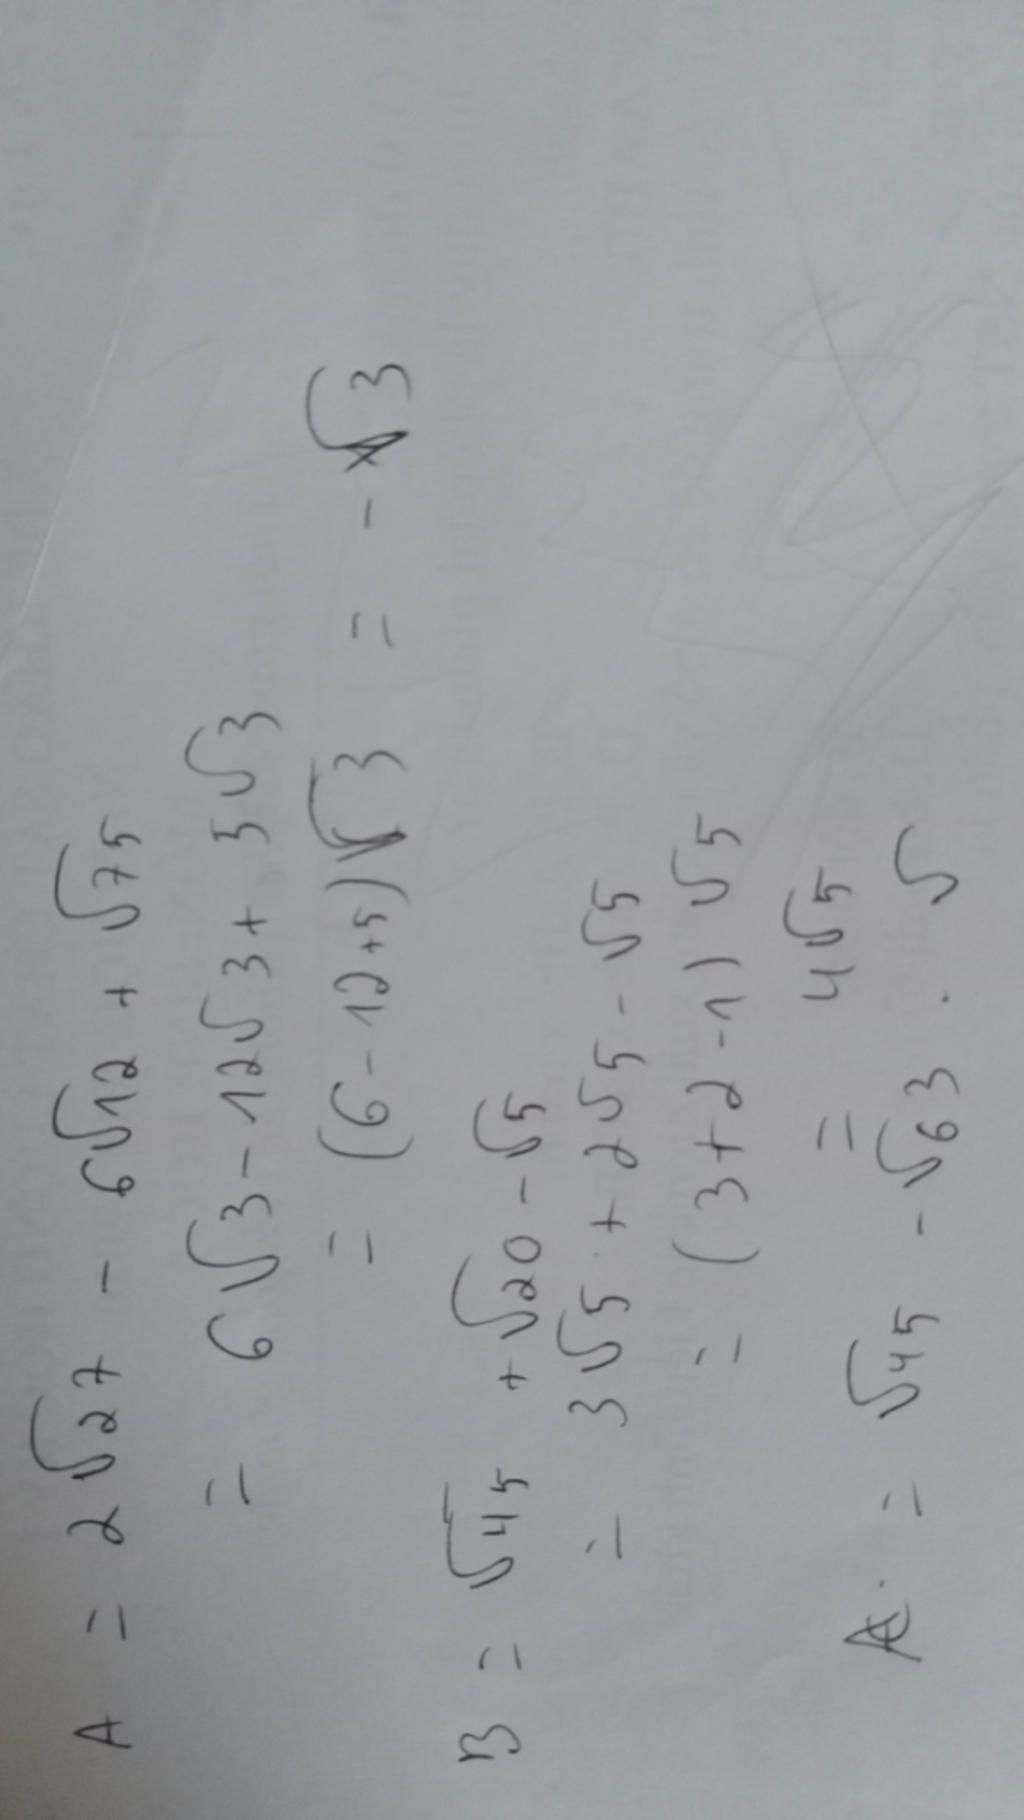 A = 2√27 - 6√12 + √75
= 6√3 - 12√3 + 5√3
= (6 - 12 + 5)√3 = - √3
B = √45 + √20 - √5
= 3√5 + 2√5 - √5
= (3 + 2 - 1) √5
= 4√5
A = √45 - √63 . √